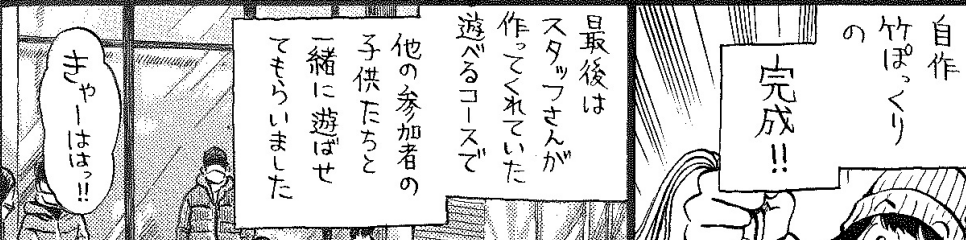 自作
竹ぽっくり
の
完成!!
最後は
スタッフさんが
作ってくれていた
遊べるコースで
他の参加者の
子供たちと
一緒に遊ばせ
てもらいました
きゃーははっ!!